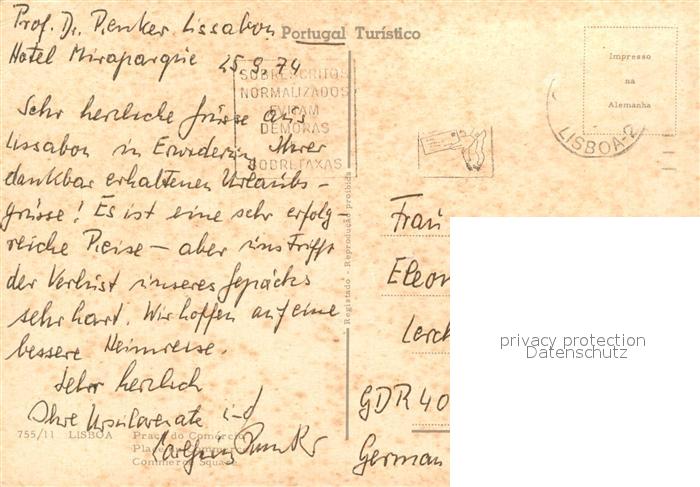 Prof. Dr. Renker Lissabon
Hotel Miraparque 25.9.74
Portugal Turístico
SOBRESCRITOS
NORMALIZADOS
EVITAM
DEMORAS
E
SOBRETAXAS
Impresso
na
Alemanha
LISBOA-2
Sehr herzliche Grüsse aus
Lissabon in Erwiderung Ihrer
dankbar erhaltenen Urlaubs-
grüsse! Es ist eine sehr erfolg-
reiche Reise – aber uns trifft
der Verlust unseres Gepäcks
sehr hart. Wir hoffen auf eine
bessere Heimreise.
Sehr herzlich
Ihre und
Renker
755/11 LISBOA Praça do Comércio
Place du Commerce
Commerce Square
Registado - Reprodução proibida
Frau
Eleon
Lerch
GDR 40
German
privacy protection
Datenschutz